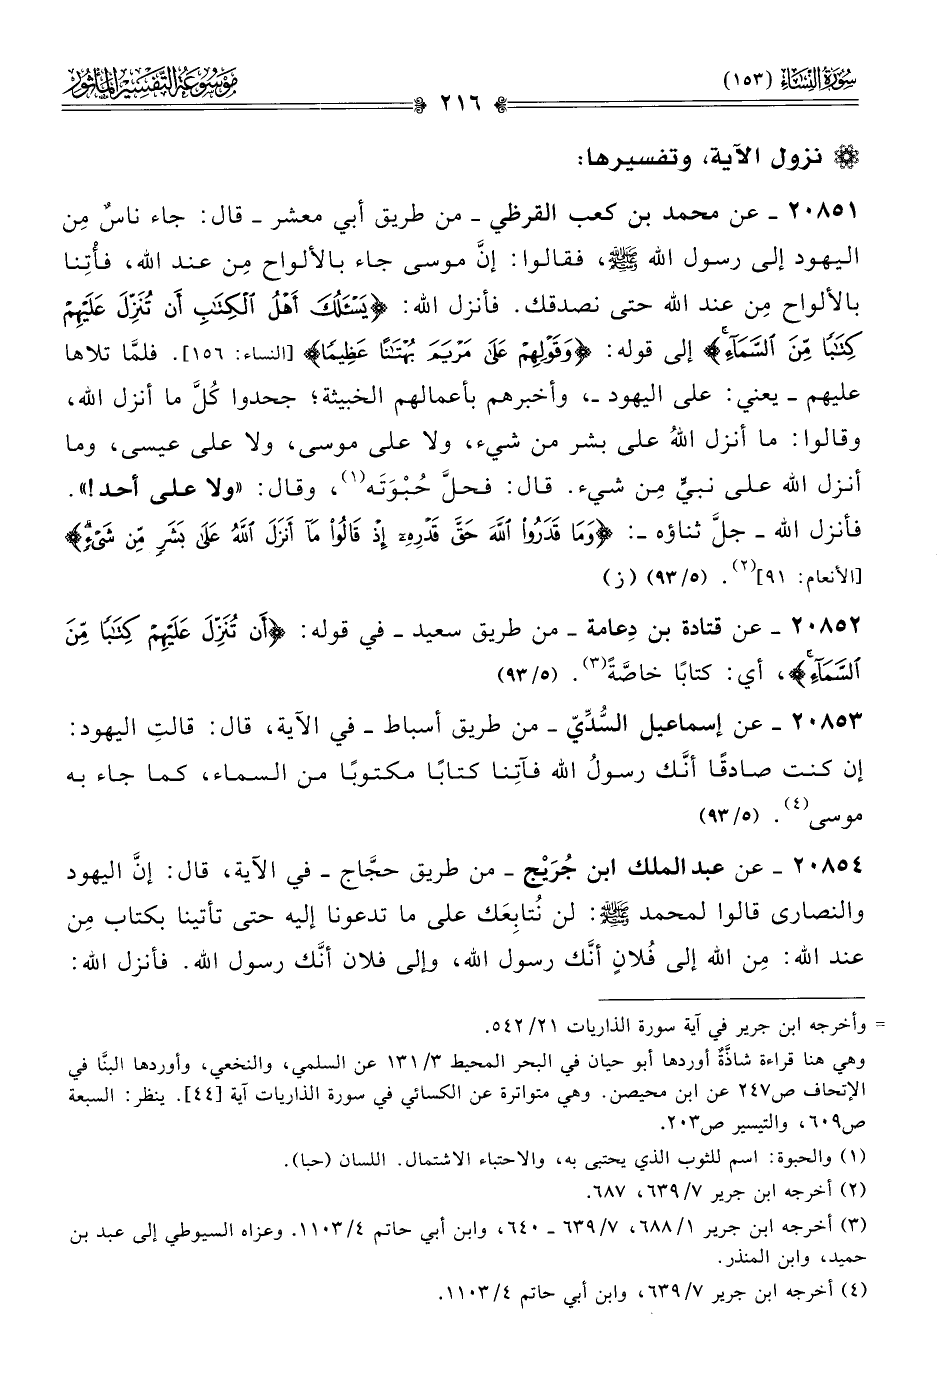 سورة النساء (١٥٣)
٢١٦
موسوعة التفسير المأثور
نزول الآية، وتفسيرها:
٢٠٨٥١ ـ عن محمد بن كعب القرظي ـ من طريق أبي معشر ـ قال: جاء ناسٌ مِن
اليهود إلى رسول الله ﷺ، فقالوا: إنَّ موسى جاء بالألواح مِن عند الله، فأْتِنا
بالألواح مِن عند الله حتى نصدقك. فأنزل الله: ﴿يَسْـَٔلُكَ أَهْلُ ٱلْكِتَٰبِ أَن تُنَزِّلَ عَلَيْهِمْ
كِتَٰبًا مِّنَ ٱلسَّمَآءِۚ﴾ إلى قوله: ﴿وَقَوْلِهِمْ عَلَىٰ مَرْيَمَ بُهْتَٰنًا عَظِيمًا﴾ [النساء: ١٥٦]. فلمَّا تلاها
عليهم ـ يعني: على اليهود ـ، وأخبرهم بأعمالهم الخبيثة؛ جحدوا كُلَّ ما أنزل الله،
وقالوا: ما أنزل اللهُ على بشر من شيء، ولا على موسى، ولا على عيسى، وما
أنزل الله على نبيٍّ مِن شيء. قال: فحلَّ حُبْوَتَه(١)، وقال: «ولا على أحد!».
فأنزل الله ـ جلَّ ثناؤه ـ: ﴿وَمَا قَدَرُواْ ٱللَّهَ حَقَّ قَدْرِهِۦٓ إِذْ قَالُواْ مَآ أَنزَلَ ٱللَّهُ عَلَىٰ بَشَرٍ مِّن شَىْءٍۗ﴾
[الأنعام: ٩١](٢). (٩٣/٥) (ز)
٢٠٨٥٢ ـ عن قتادة بن دِعامة ـ من طريق سعيد ـ في قوله: ﴿أَن تُنَزِّلَ عَلَيْهِمْ كِتَٰبًا مِّنَ
ٱلسَّمَآءِۚ﴾، أي: كتابًا خاصَّةً(٣). (٩٣/٥)
٢٠٨٥٣ ـ عن إسماعيل السُّدِّيّ ـ من طريق أسباط ـ في الآية، قال: قالتِ اليهود:
إن كنت صادقًا أنَّك رسولُ الله فآتِنا كتابًا مكتوبًا من السماء، كما جاء به
موسى(٤). (٩٣/٥)
٢٠٨٥٤ ـ عن عبد الملك ابن جُرَيْج ـ من طريق حجَّاج ـ في الآية، قال: إنَّ اليهود
والنصارى قالوا لمحمد ﷺ: لن نُتابِعَك على ما تدعونا إليه حتى تأتينا بكتاب مِن
عند الله: مِن الله إلى فُلانٍ أنَّك رسول الله، وإلى فلان أنَّك رسول الله. فأنزل الله:
= وأخرجه ابن جرير في آية سورة الذاريات ٥٤٢/٢١.
وهي هنا قراءة شاذَّةٌ أوردها أبو حيان في البحر المحيط ١٣١/٣ عن السلمي، والنخعي، وأوردها البنَّا في
الإتحاف ص٢٤٧ عن ابن محيصن. وهي متواترة عن الكسائي في سورة الذاريات آية [٤٤]. ينظر: السبعة
ص٦٠٩، والتيسير ص٢٠٣.
(١) والحبوة: اسم للثوب الذي يحتبى به، والاحتباء الاشتمال. اللسان (حبا).
(٢) أخرجه ابن جرير ٦٣٩/٧، ٦٨٧.
(٣) أخرجه ابن جرير ٦٨٨/١، ٦٣٩/٧ ـ ٦٤٠، وابن أبي حاتم ١١٠٣/٤. وعزاه السيوطي إلى عبد بن
حميد، وابن المنذر.
(٤) أخرجه ابن جرير ٦٣٩/٧، وابن أبي حاتم ١١٠٣/٤.